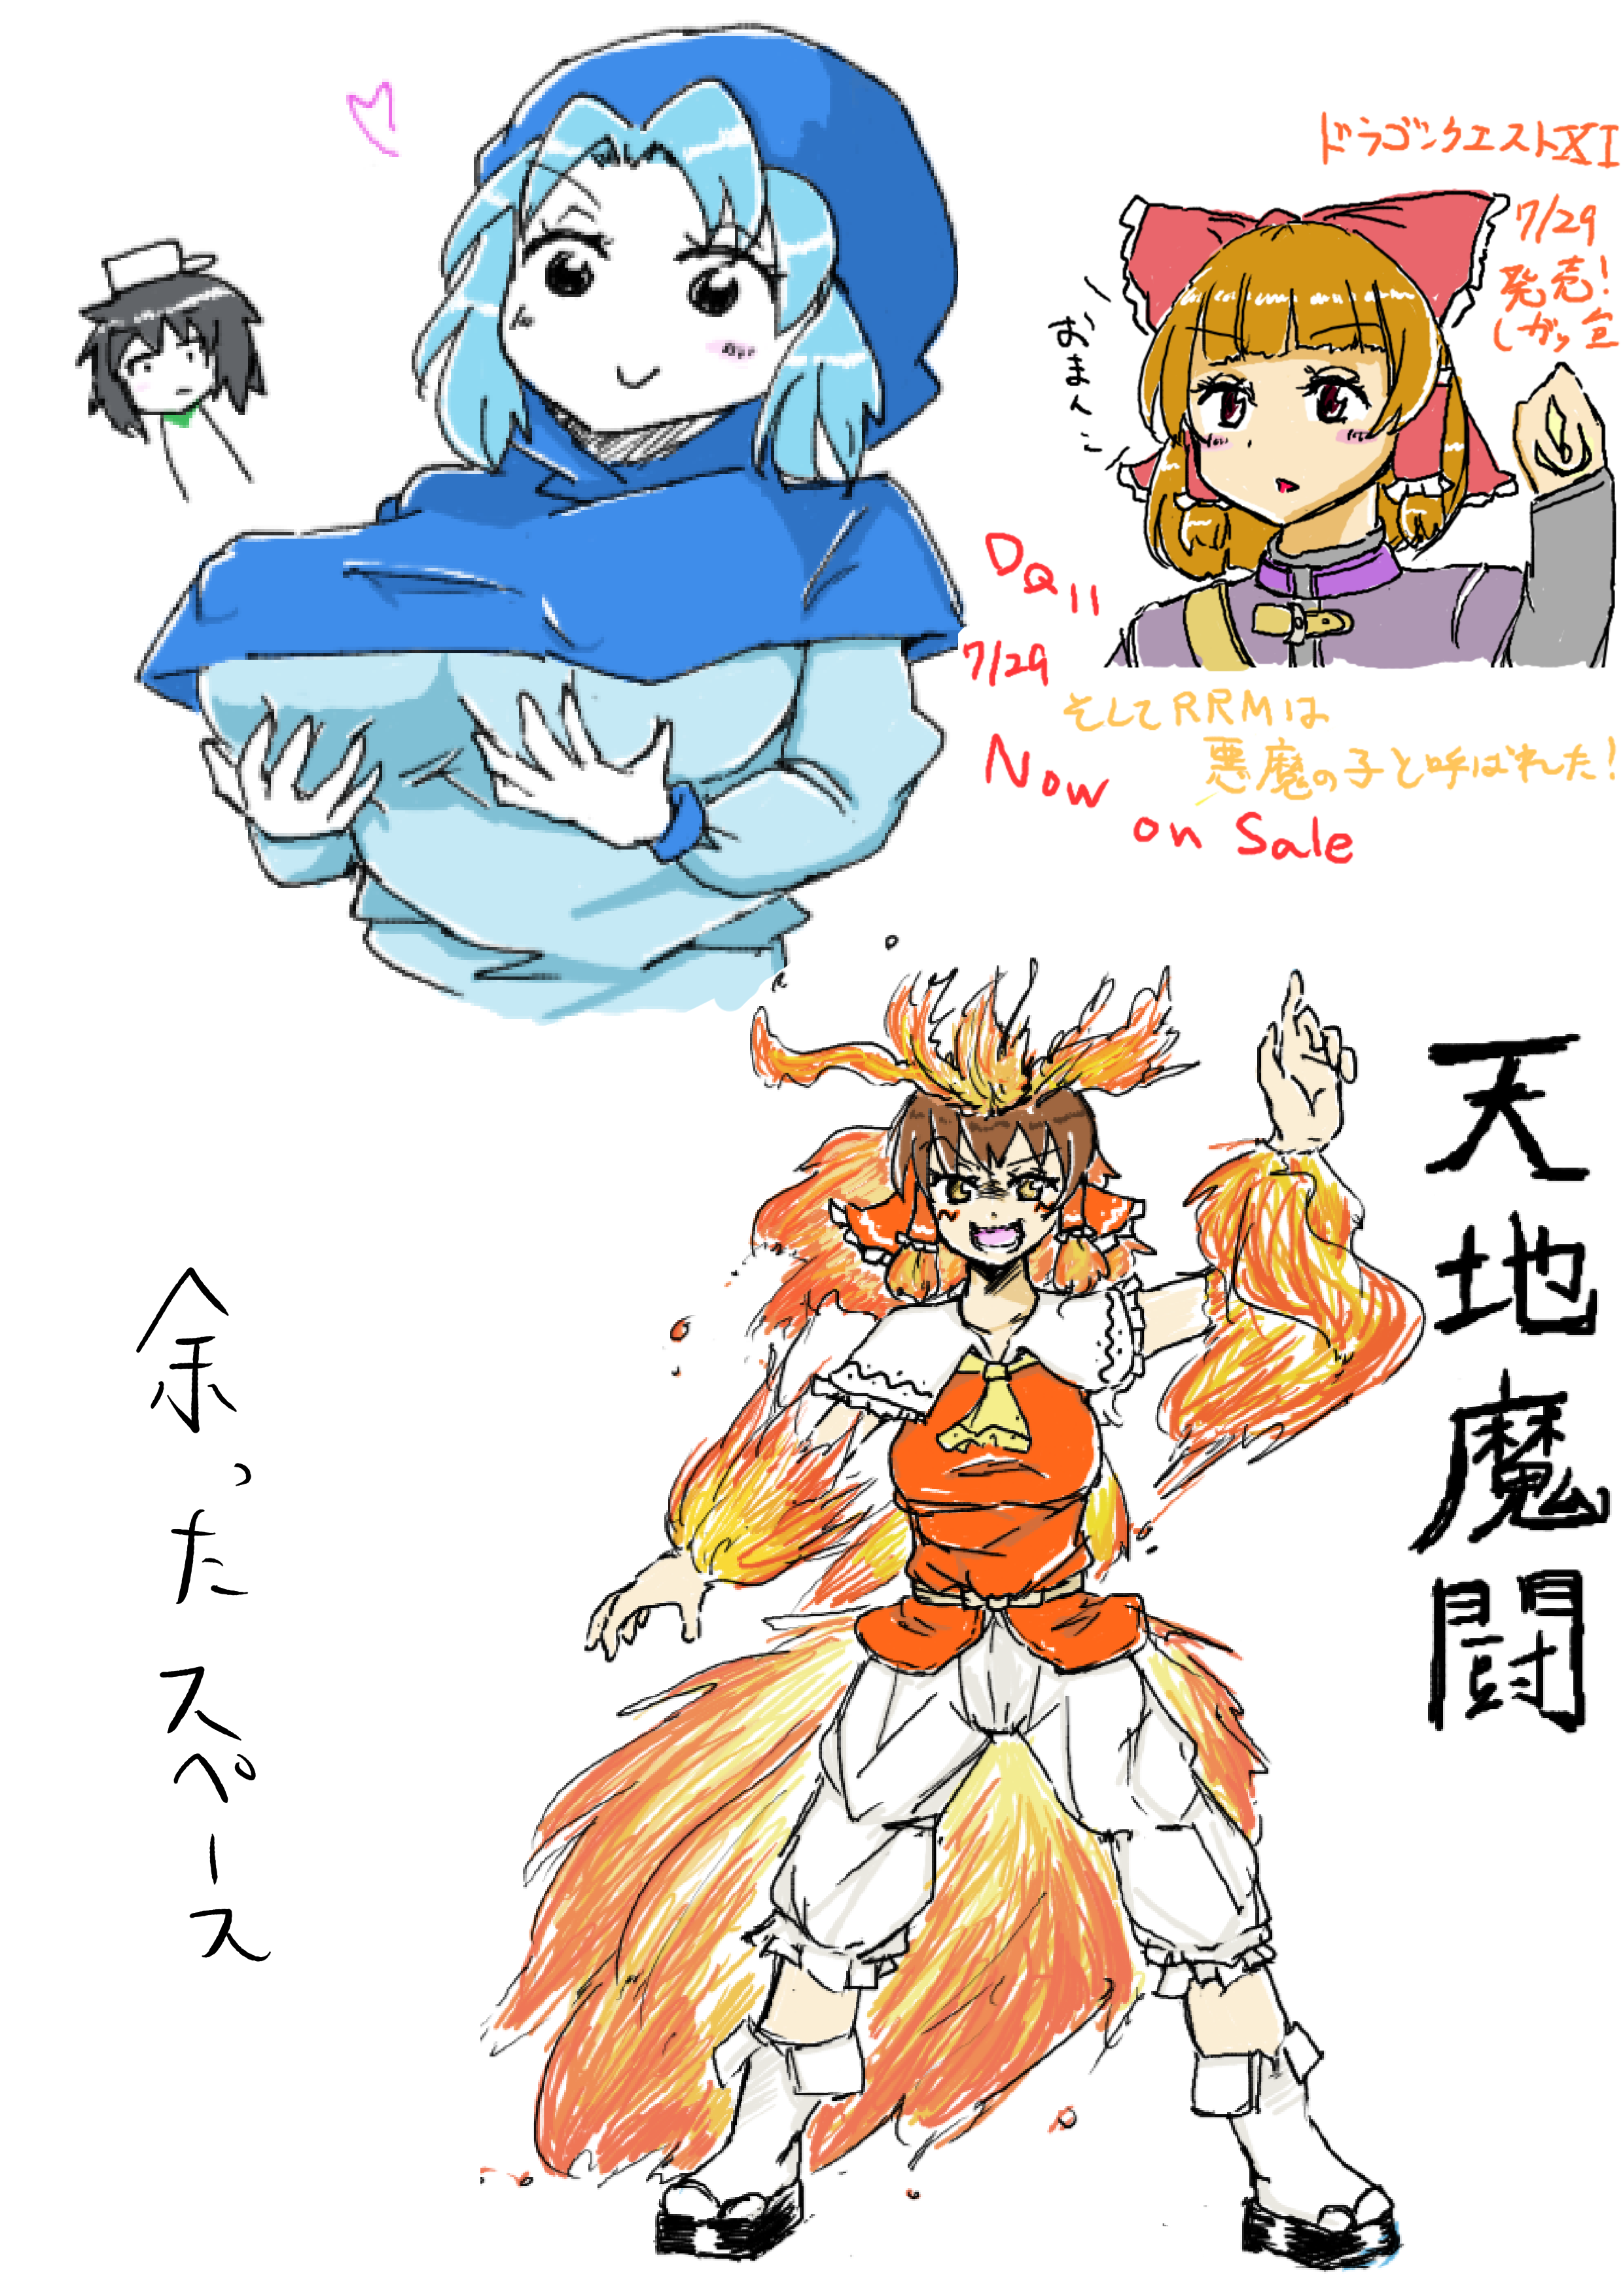 ドラゴンクエストXI
7/29
発売!
しガッ包
おまんこ
DQ11
7/29
Now
on Sale
そしてRRMは
悪魔の子と呼ばれた!
天地魔闘
余ったスペース